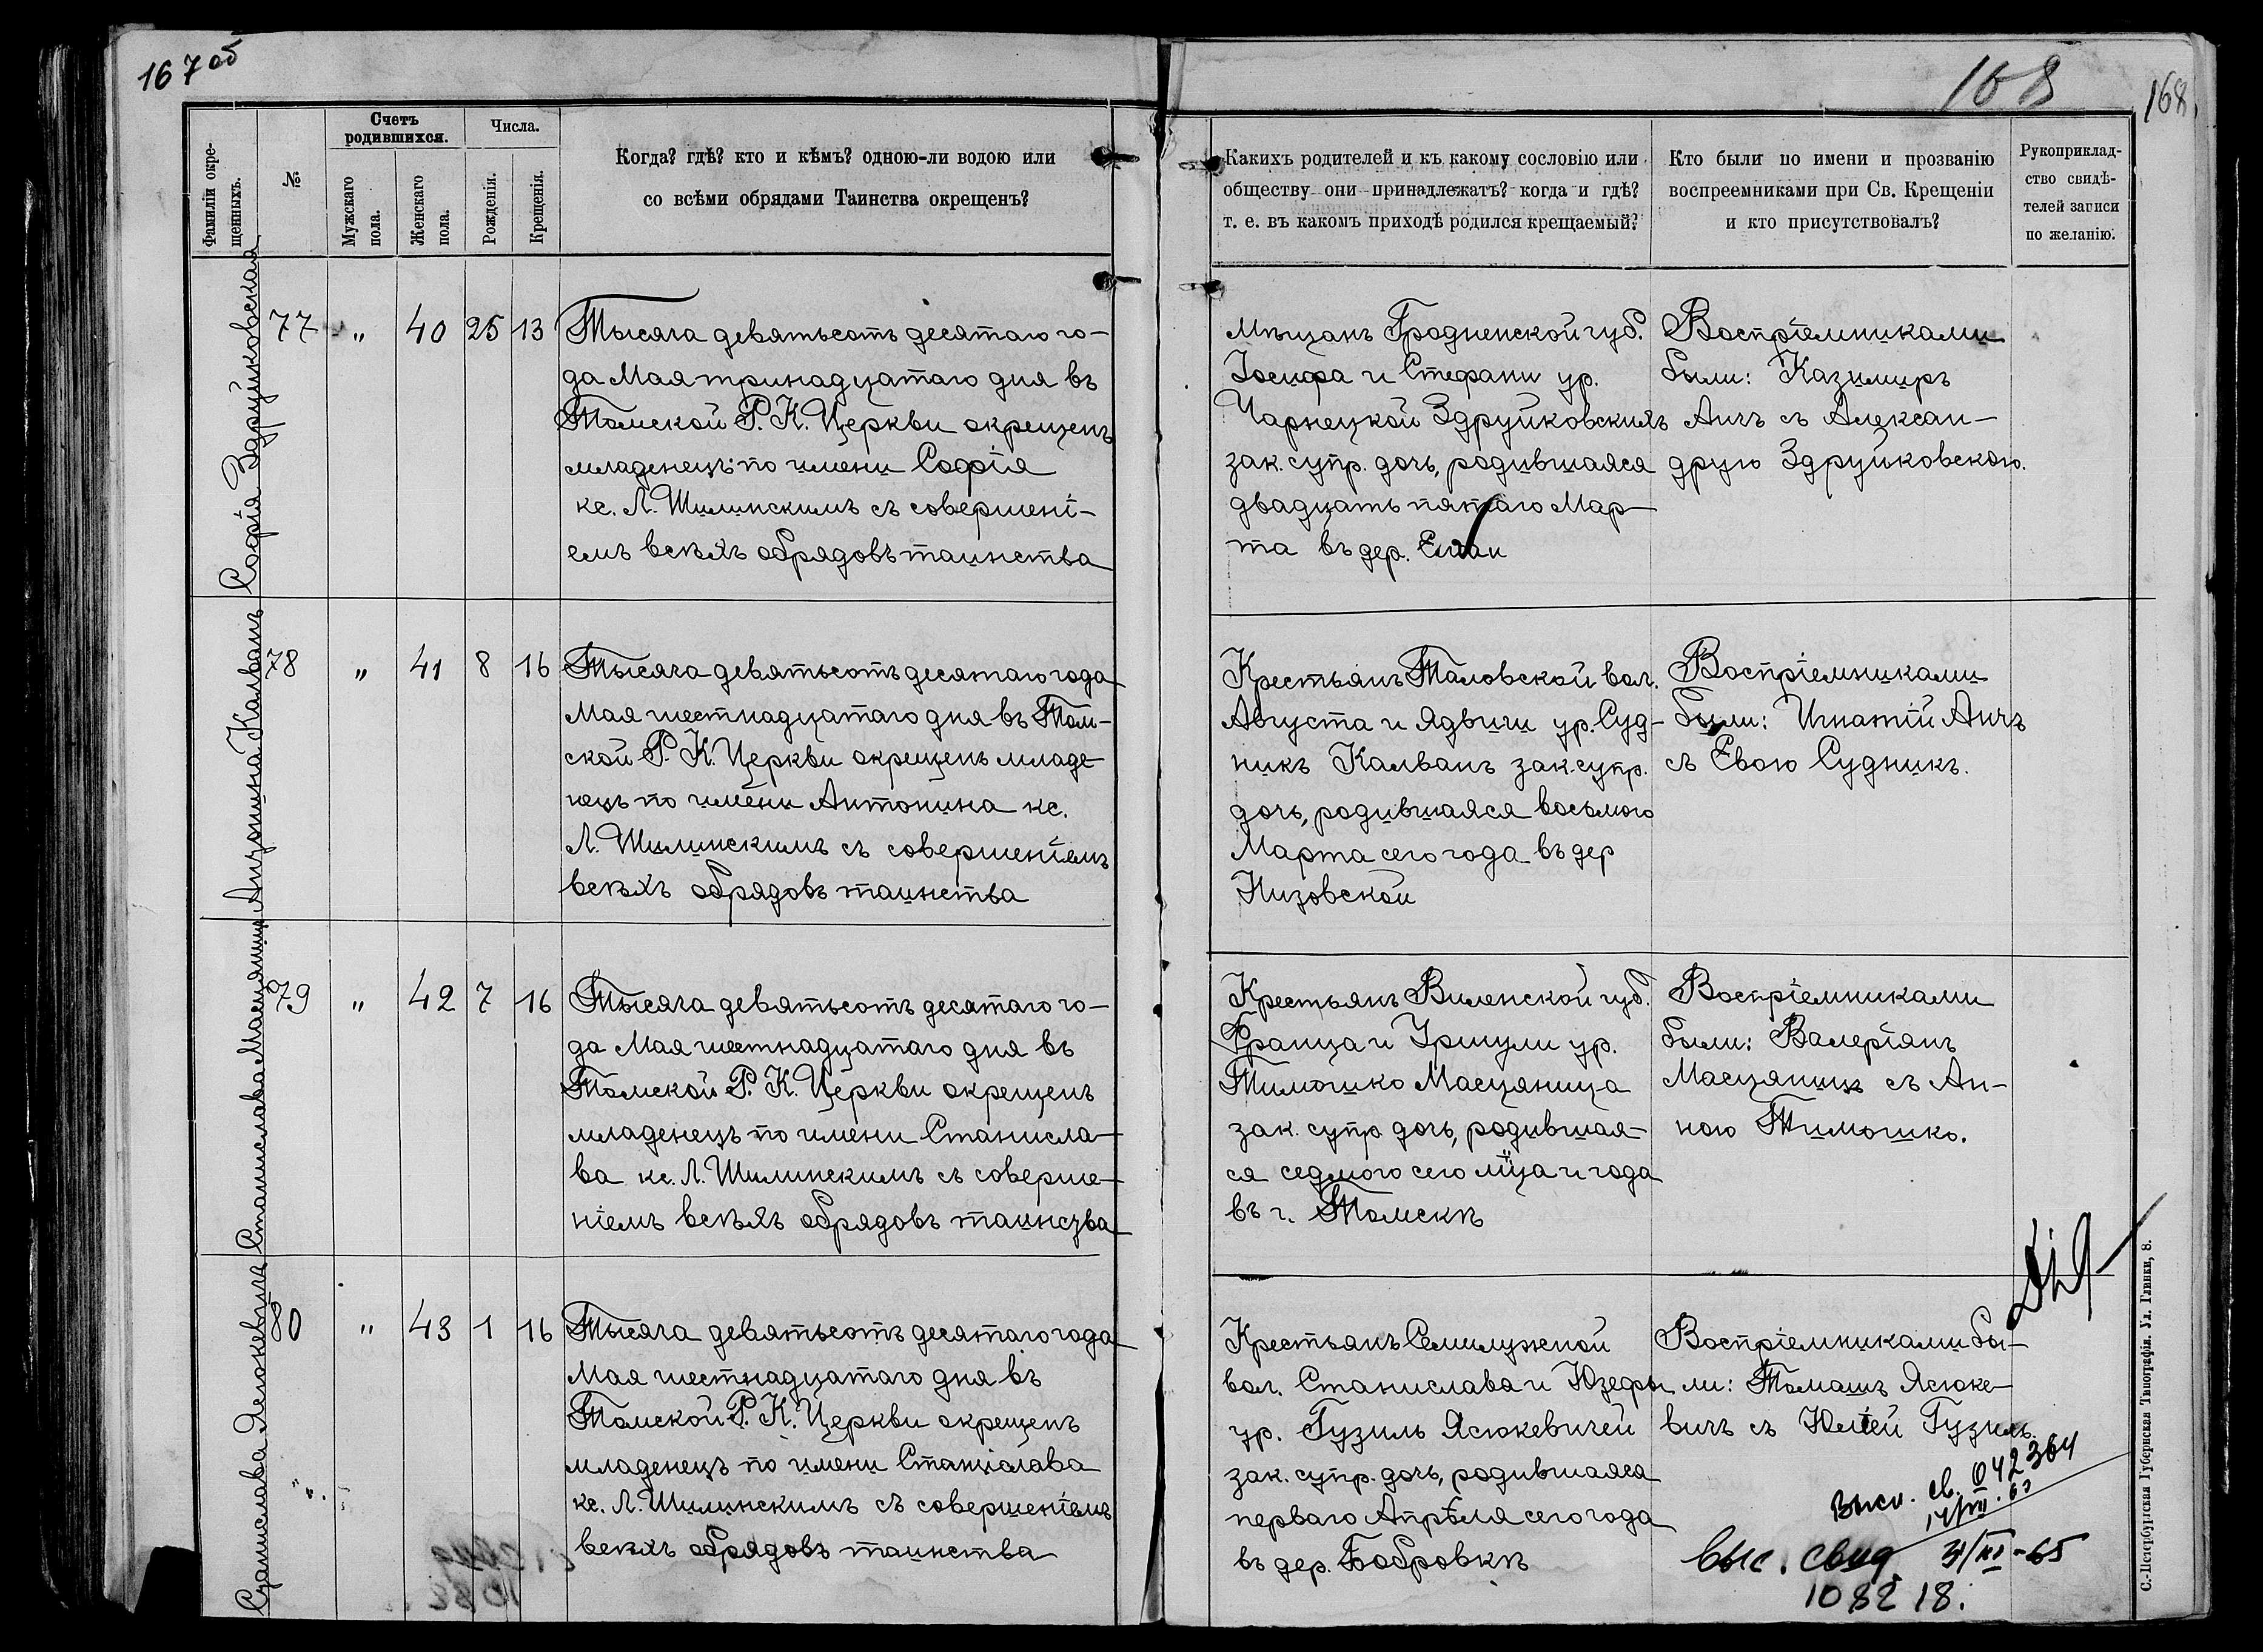 167 об
168
168.
Фамиліи окре-
щенныхъ.
№
Счетъ
родившихся.
Мужскаго
пола.
Женскаго
пола.
Числа.
Рожденія.
Крещенія.
Когда? гдѣ? кто и кѣмъ? одною-ли водою или
со всѣми обрядами Таинства окрещенъ?
Какихъ родителей и къ какому сословію или
обществу они принадлежатъ? когда и гдѣ?
т. е. въ какомъ приходѣ родился крещаемый?
Кто были по имени и прозванію
воспреемниками при Св. Крещеніи
и кто присутствовалъ?
Рукоприклад-
ство свидѣ-
телей записи
по желанію.
Софія Здруйковская
77 " 40 25 13
Тысяча девятьсотъ десятаго го-
да Мая тринадцатаго дня въ
Томской Р. К. Церкви окрещенъ
младенецъ по имени Софія
кс. Л. Шилинскимъ съ совершені-
емъ всѣхъ обрядовъ таинства
Мѣщанъ Гродненской губ.
Іосифа и Стефаніи ур.
Чарнецкой Здруйковскихъ
зак. супр. дочь, родившаяся
двадцать пятаго Мар-
та въ дер.
Воспріемниками
были: Казимиръ
Анчъ съ Алексан-
дрою Здруйковскою.
Антонина Калванъ
78 " 41 8 16
Тысяча девятьсотъ десятаго года
Мая шестнадцатаго дня въ Том-
ской Р. К. Церкви окрещенъ младе
нецъ по имени Антонина кс.
Л. Шилинскимъ съ совершеніемъ
всѣхъ обрядовъ таинства
Крестьянъ Таловской вол.
Августа и Ядвиги ур. Суд-
никъ Калванъ зак. супр.
дочь, родившаяся восьмого
Марта сего года въ дер
Низовской
Воспріемниками
были: Игнатій Анчъ
съ Евою Судникъ.
Станислава Масцяница
79 " 42 7 16
Тысяча девятьсотъ десятаго го-
да Мая шестнадцатаго дня въ
Томской Р. К. Церкви окрещенъ
младенецъ по имени Станисла-
ва кс. Л. Шилинскимъ съ соверше-
ніемъ всѣхъ обрядовъ таинства
Крестьянъ Виленской губ.
Франца и Уршули ур.
Тимошко Масцяница
зак. супр дочь, родившая-
ся седмого сего мѣца и года
въ г. Томскѣ
Воспріемниками
были: Валеріянъ
Масцяницъ съ Ан-
ною Тимошко.
Станислава Ясюкевичъ
80 " 43 1 16
Тысяча девятьсотъ десятаго года
Мая шестнадцатаго дня въ
Томской Р. К. Церкви окрещенъ
младенецъ по имени Станіолава
кс. Л. Шилинскимъ съ совершеніемъ
всѣхъ обрядовъ таинства
Крестьянъ Семилужной
вол. Станислава и Юзефы
ур. Гузиль Ясюкевичей
зак. супр. дочь, родившаяся
перваго Апрѣля сего года
въ дер. Бобровкѣ
Воспріемниками бы-
ли: Томашъ Ясюке-
вичъ съ Юлией Гузиль.
высл. св. 042364
14/VII. 63
выс. свид. 4/XI-65
108218.
С.-Петербургская Губернская Типографія. Ул. Глинки, 8.